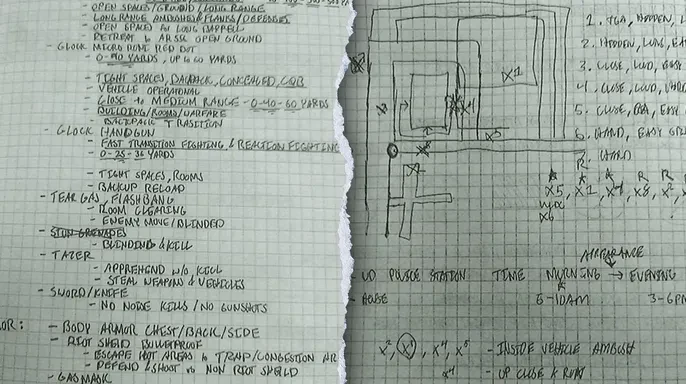 - OPEN SPACES/GROUND/LONG RANGE
- LONG RANGE AMBUSHES/FLANKS/DEFENSES
- OPEN SPACES LONG BARRELL
- RETREAT OPEN GROUND
- GLOCK MICRO RONI RED DOT
0-90 YARDS, UP TO 60 YARDS
- TIGHT SPACES, CONCEALED, CQB
- VEHICLE OPERATIONAL
- CLOSE TO MEDIUM RANGE - 0-40-60 YARDS
- BUILDING/ROOMS/WARFARE
- BACKPACK TRASITION
- GLOCK HANDGUN
- FAST TRANSITION FIGHTING & REACTION FIGHTING
- 0-25-36 YARDS
- TIGHT SPACES, ROOMS
- BACKUP RELOAD
- TEAR GAS, FLASHBANG
- ROOM CLEARING
- ENEMY MOVE/BLINDED
- STUN GRENADES
- BLINDING & KILL
- TAZER
- APPREHEND W/O KILL
- STEAL WEAPONS & VEHICLES
- SWORD/KNIFE
- NO NOISE KILLS/NO GUNSHOTS
OR: - BODY ARMOR CHEST/BACK/SIDE
- RIOT SHIELD BULLETPROOF
- ESCAPE HOT AREAS TRAP/CONGESTION
- DEFEND & SHOOT NON RIOT SHIELD
- GAS MASK
1. HIDDEN, L
2. HIDDEN, LONG, EA
3. CLOSE, LOUD, EASY
4. CLOSE, LOUD,
5. CLOSE, EASY
6. HARD, EASY
R. HARD
X1
X4
X5
R R
X5, X1, X4, X8, X2,
X6
APPEARANCE
- UD POLICE STATION TIME MORNING → EVENING
- HOUSE 6-10AM 3-6P
X2, X1, X4, X5 - INSIDE VEHICLE AMBUSH
X4 - UP CLOSE & RUN